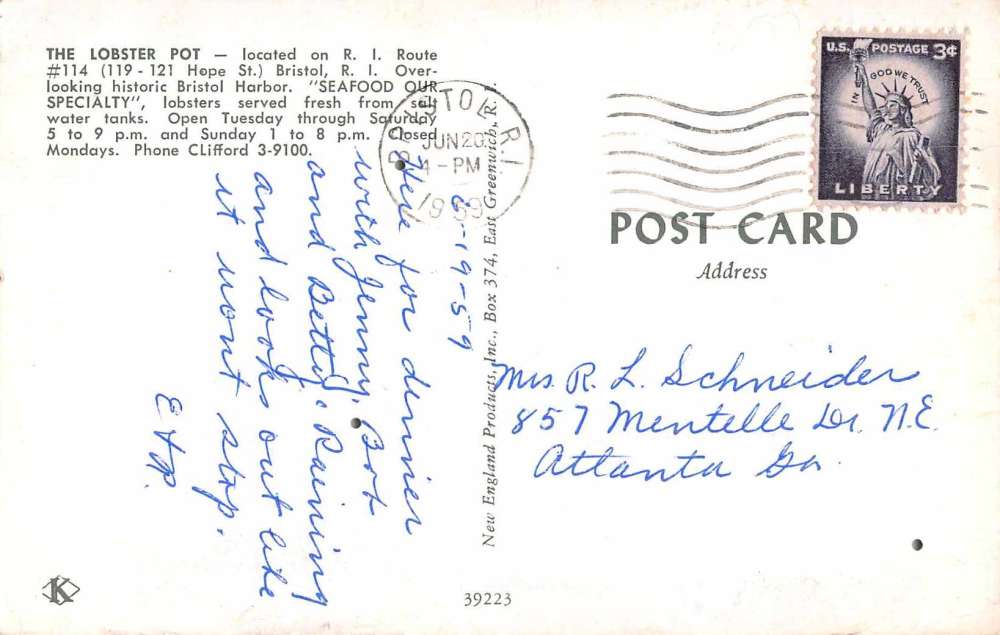 THE LOBSTER POT — located on R. I. Route
#114 (119 - 121 Hope St.) Bristol, R. I. Over-
looking historic Bristol Harbor. "SEAFOOD OUR
SPECIALTY", lobsters served fresh from salt
water tanks. Open Tuesday through Saturday
5 to 9 p.m. and Sunday 1 to 8 p.m. Closed
Mondays. Phone CLifford 3-9100.
6-19-59
Here for dinner
with Jenny, Bot
and Betty. Raining
and looks out like
it wont stop.
New England Products, Inc., Box 374, East Greenwich, R. I.
BRISTOL R.I.
JUN 20
PM
1959
U.S. POSTAGE 3¢
IN GOD WE TRUST
LIBERTY
POST CARD
Address
Mrs. R. L. Schneider
857 Mentelle Dr. N.E.
Atlanta Ga.
K
39223